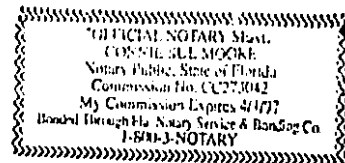 "OFFICIAL NOTARY SEAL"
CONNIE SUE MOORE
Notary Public, State of Florida
Commission No. CC273042
My Commission Expires 4/1/97
Bonded Through Fla. Notary Service & Bonding Co.
1-800-3-NOTARY